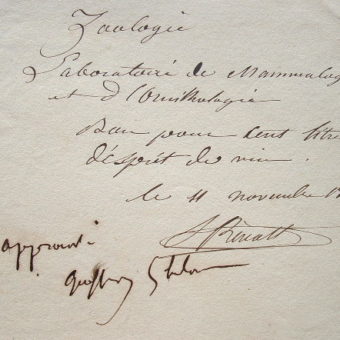 Zoologie
Laboratoire de Mammalog
et d'Ornithologie
Bon pour cent litre
d'esprit de vin.
le 11 novembre 1
approuvé
Geoffroy St hilaire